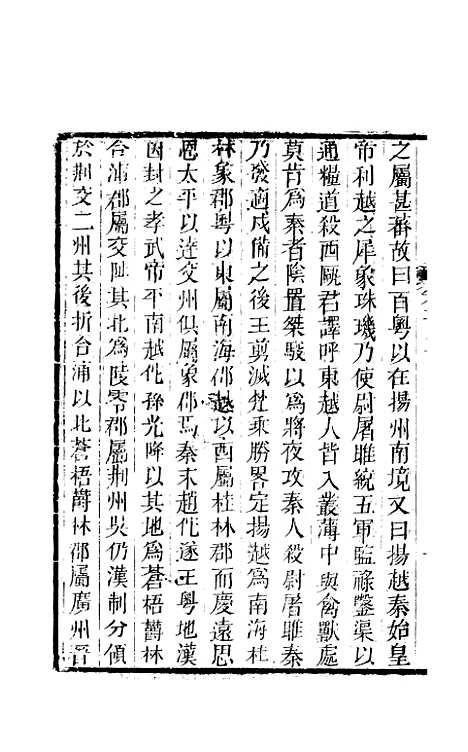 之屬甚蕃故曰百粵以在揚州南境又曰揚越秦始皇
帝利越之犀象珠璣乃使尉屠雎統五軍監祿鑿渠以
通糧道殺西甌君譯呼東越人皆入叢薄中與禽獸處
莫肯爲秦者陰置桀駿以爲將夜攻秦人殺尉屠雎秦
乃發適戍備之後王剪滅楚乘勝畧定揚越爲南海桂
林象郡粵以東屬南海郡越以西屬桂林郡而慶遠思
恩太平以達交州俱屬象郡焉秦末趙佗遂王粵地漢
因封之孝武帝平南越佗孫光降以其地爲蒼梧欝林
合浦郡屬交阯其北爲陵零郡屬荆州吳仍漢制分傎
於荆交二州其後折合浦以北蒼梧欝林郡屬廣州晉